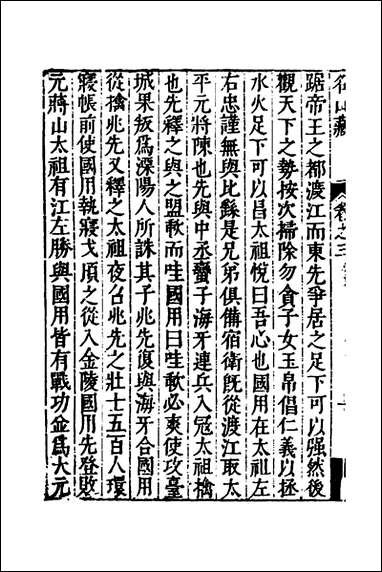 名山藏 卷之三
踞帝王之都渡江而東先爭居之足下可以强然後
觀天下之勢按次掃除勿貪子女玉帛倡仁義以拯
水火足下可以昌太祖悅曰吾心也國用在太祖左
右忠謹無與比繇是兄弟俱備宿衛旣從渡江取太
平元將陳也先與中丞蠻子海牙連兵入寇太祖擒
也先釋之與之盟軟而哇國用曰哇軟必爽使攻臺
城果叛爲溧陽人所誅其子兆先復與海牙合國用
從擒兆先又釋之太祖夜召兆先之壯士五百人環
寢帳前使國用執寢戈頃之從入金陵國用先登敗
元蔣山太祖有江左勝與國用皆有戰功金爲大元